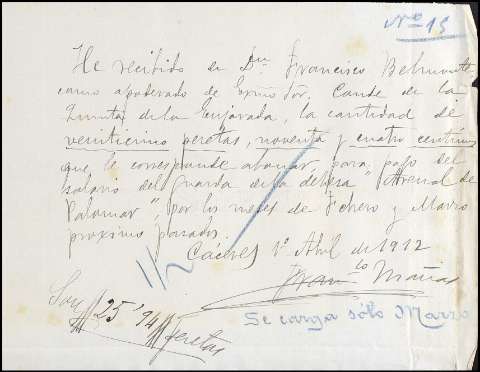 Nº 15
He recibido de Dn Francisco Belmonte
como apoderado de Excmo Sor. Conde de la
Quinta de la Enjarada, la cantidad de
veinticinco pesetas, noventa y cuatro centimos
que le corresponde abonar para pago del
salario del Guarda de la dehesa "Arenal de
Palomar", por los meses de Febrero y Marzo
proximo pasados.
Cáceres 1º Abril de 1912
Mañas
Son 25'94 Pesetas
Se carga sólo Marzo